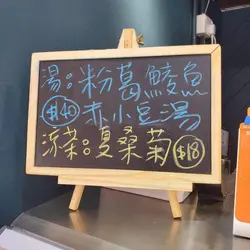 湯：粉葛鯪魚
$40 赤小豆湯
涼茶：夏桑菊 $18